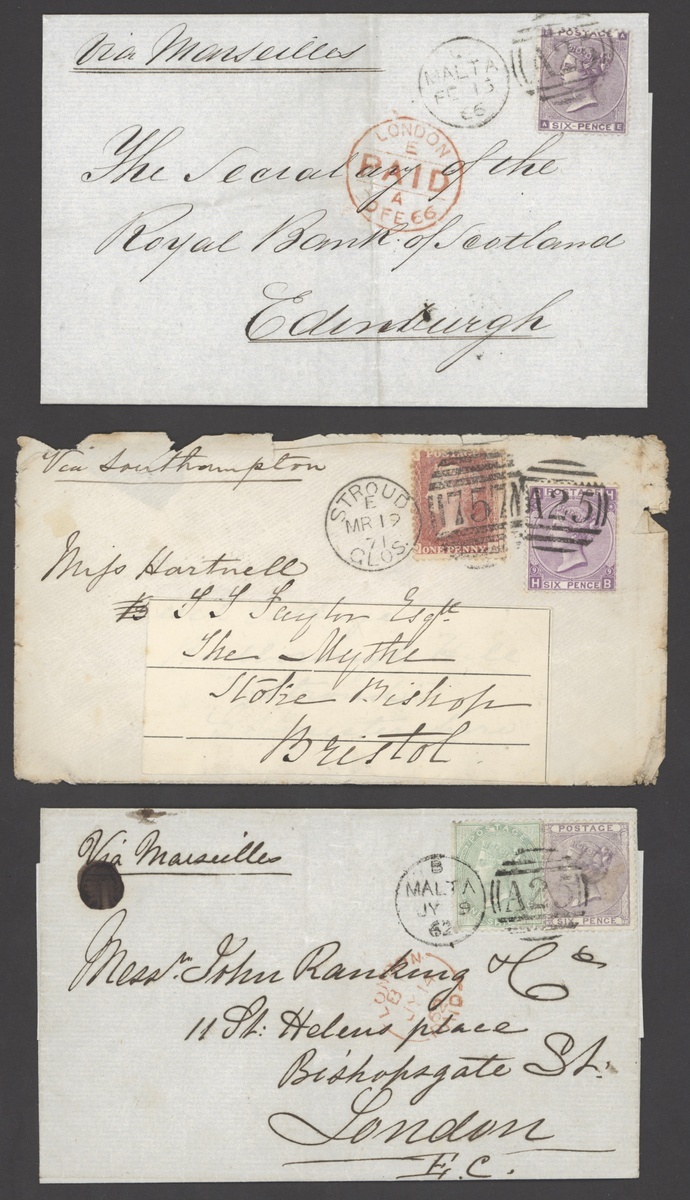 Via Marseilles
MALTA
FE 13
66
A25
POSTAGE
A
SIX-PENCE
LONDON
E
PAID
A
FE 66
The Secretary of the
Royal Bank of Scotland
Edinburgh
Via Southampton
STROUD
E
MR 19
71
GLOS.
757
ONE PENNY
A25
H
9
9
H SIX PENCE B
Miss Hartnell
Esqre
The Mythe
Stoke Bishop
Bristol
Via Marseilles
B
MALTA
JY
62
POSTAGE
A25
POSTAGE
SIX PENCE
Messrs John Ranking & Co
11 St: Helens place
Bishopsgate St:
London
E.C.